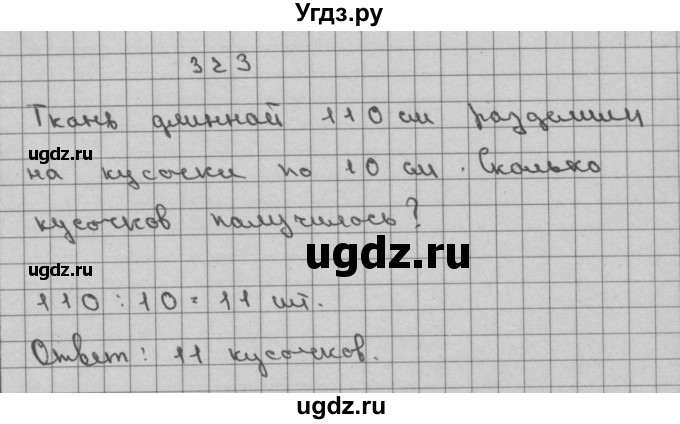 Угдз.ру
323
Ткань длинной 110 см разделили
ugdz.ru
на кусочки по 10 см. Сколько
кусочков получилось?
ugdz.ru
ugdz.ru
110 : 10 = 11 шт.
Ответ: 11 кусочков.
ugdz.ru